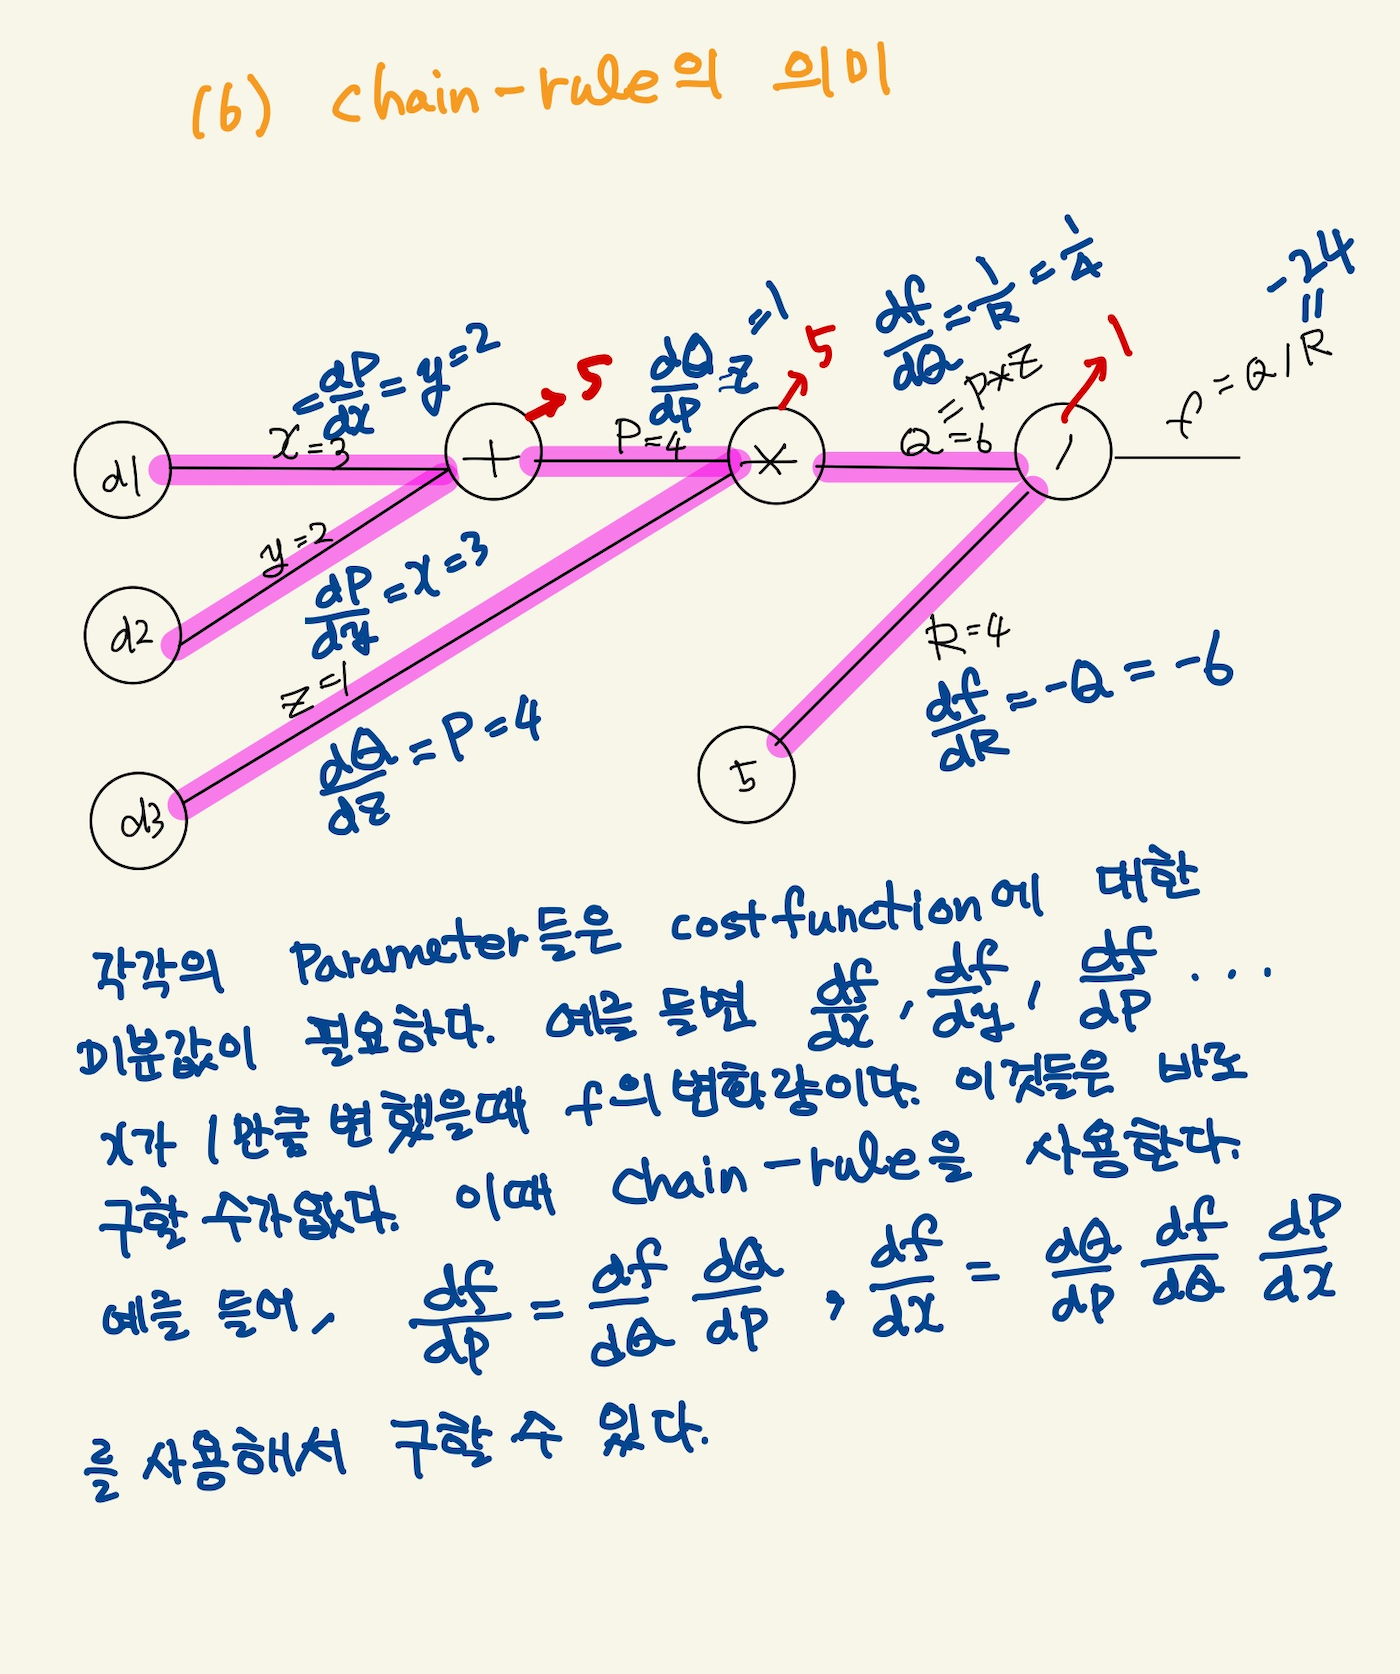 (6) chain-rule의 의미
= dP/dx = y = 2
5
dQ/dP = z = 1
5
df/dQ = 1/R = 1/4
= P*Z
1
-24
=
f = Q/R
d1
x=3
+
P=4
*
Q=6
/
y=2
d2
dP/dy = x = 3
z=1
R=4
df/dR = -Q = -6
dQ/dz = P = 4
d3
5
각각의 Parameter들은 cost function에 대한
미분값이 필요하다. 예를 들면 df/dx, df/dy, df/dP ...
x가 1만큼 변했을때 f의 변화량이다. 이것들은 바로
구할 수가 없다. 이때 chain-rule을 사용한다.
예를 들어, df/dP = df/dQ dQ/dP, df/dx = dQ/dP df/dQ dP/dx
를 사용해서 구할 수 있다.